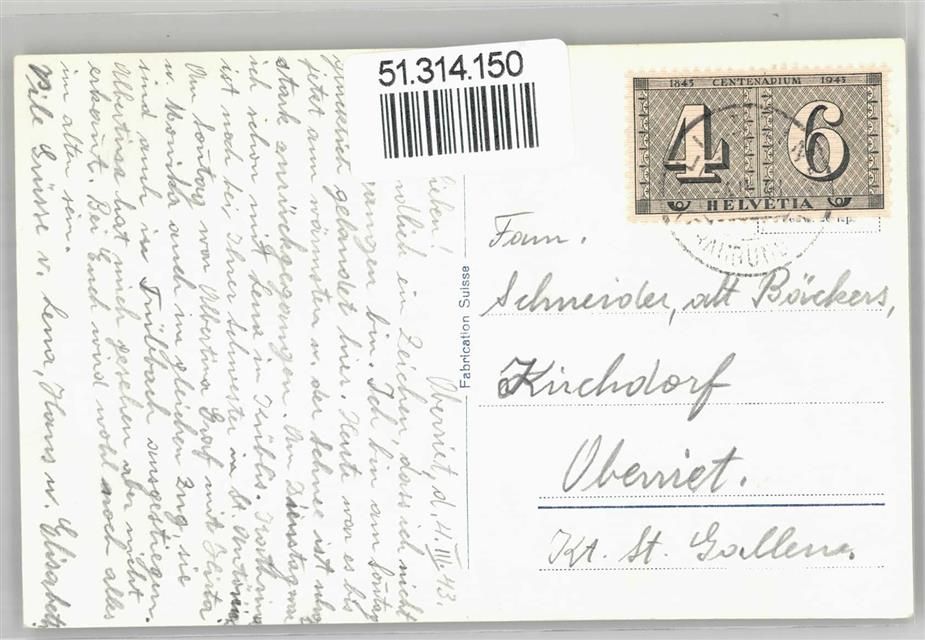 51.314.150
1843 CENTENARIUM 1943
4 6
HELVETIA
Fabrication Suisse
Fam.
Schneider, alt Bäckers,
Kirchdorf
Oberriet.
Kt. St. Gallen.
Oberriet, d. 11. III. 43.
ieben!
ndlich ein Zeichen, dass ich nicht
gangen bin. Ich bin am Sontag
gelandet hier. Heute war es bis
jetzt am wärmsten u. der Schnee ist schon
stark zurückgegangen. Am Dienstag war
ich schon mit Lena in
ist noch bei Ihrer Schwester in St. Antönien
Am Sontag war Albertina Graf mit
u. Monika auch im gleichen Zug, sie
sind auch in Trübbach ausgestiegen.
Albertina hat mich gesehen aber nicht
erkannt. Bei Euch wird wohl noch alles
im alten sein.
Viele Grüsse v. Lena, Hans u. Elisabeth